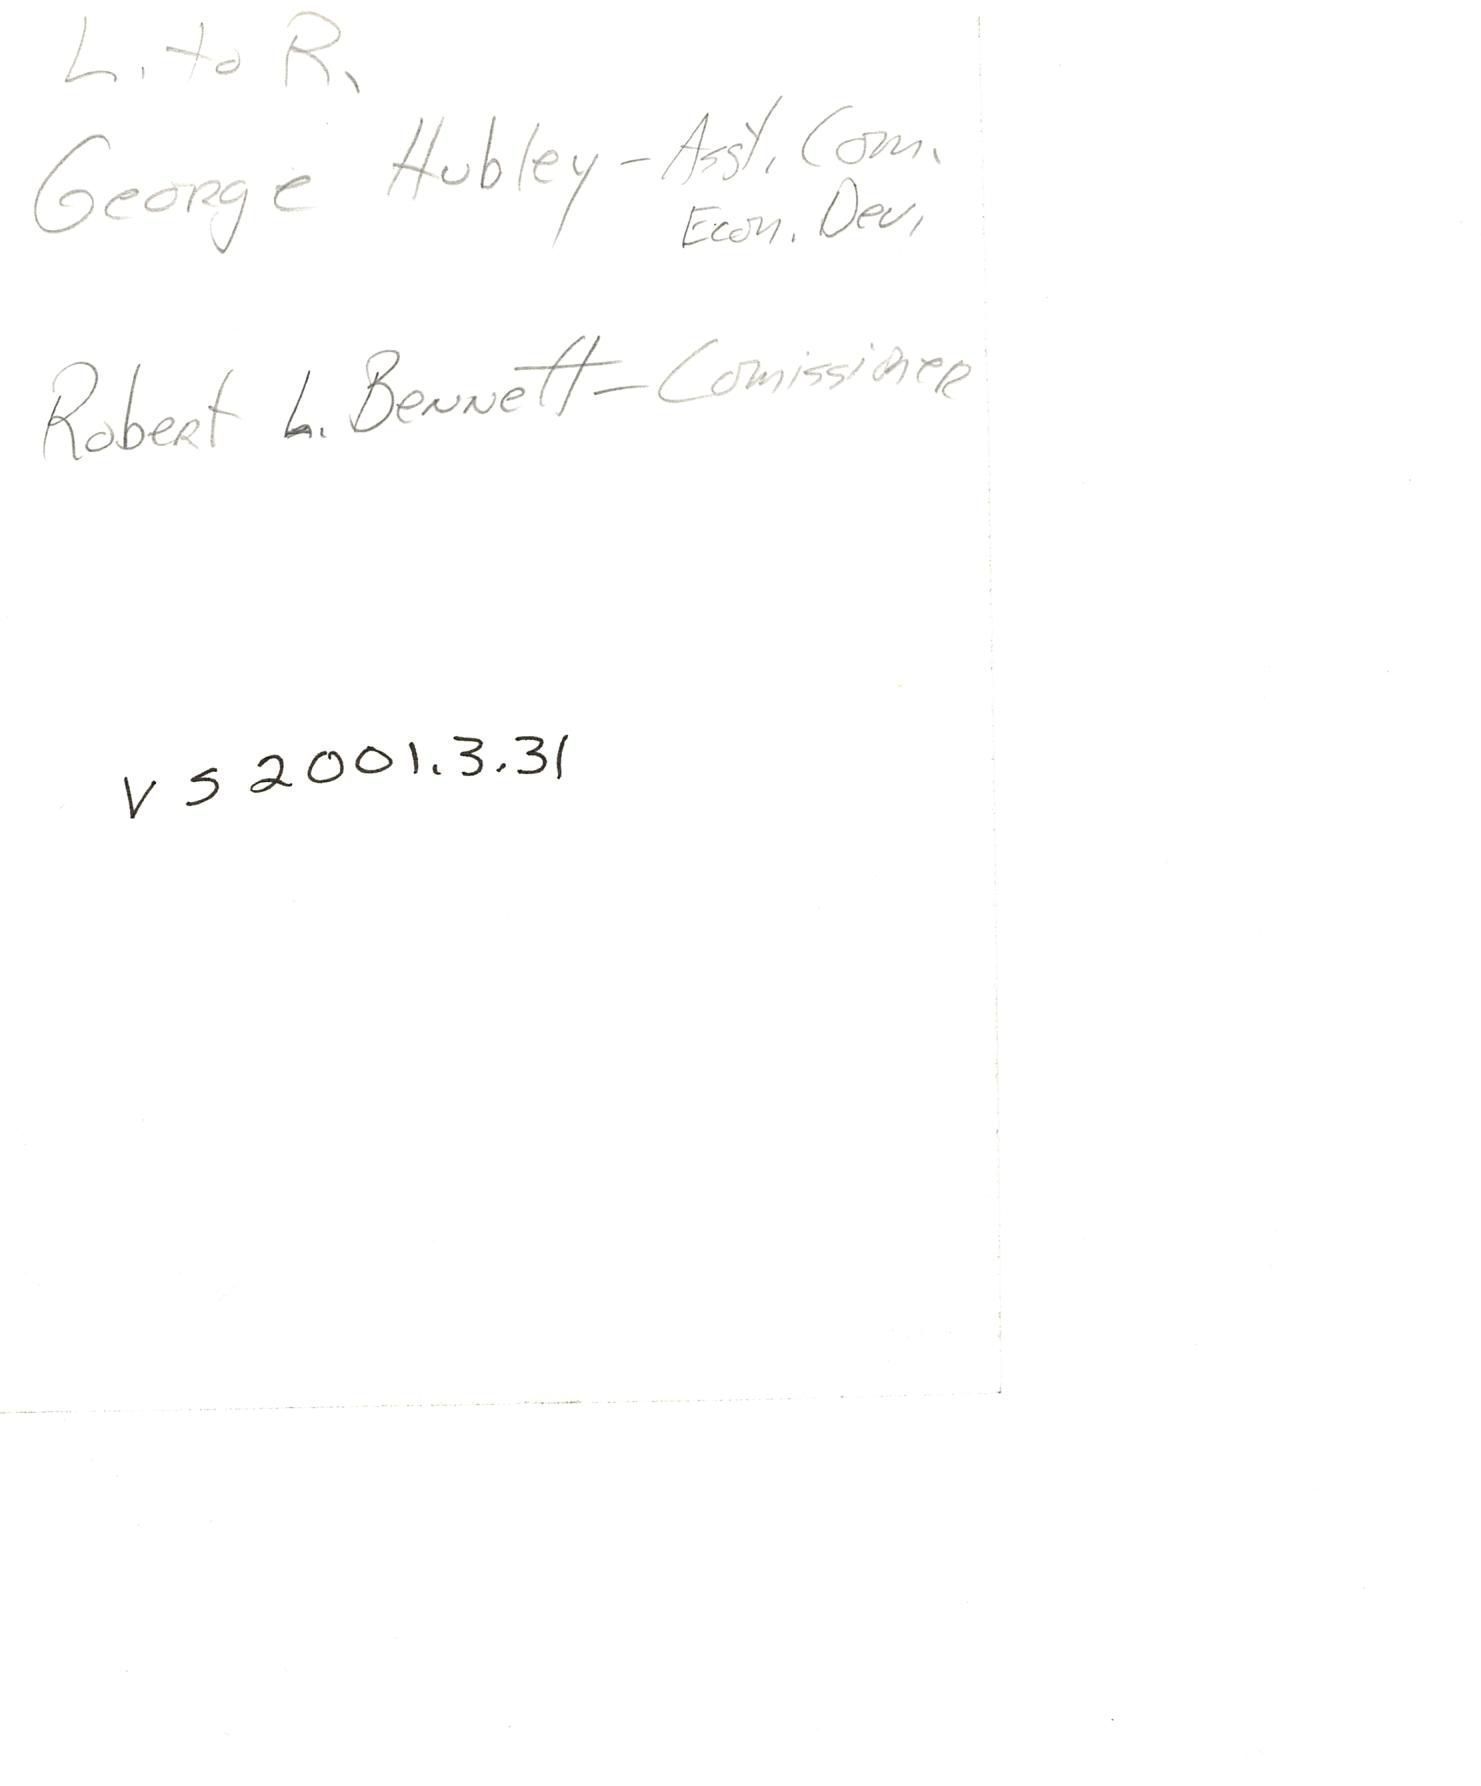 L. to R.
George Hubley - Ass't. Com.
Econ. Dev.
Robert L. Bennett - Comissioner
VS 2001.3.31